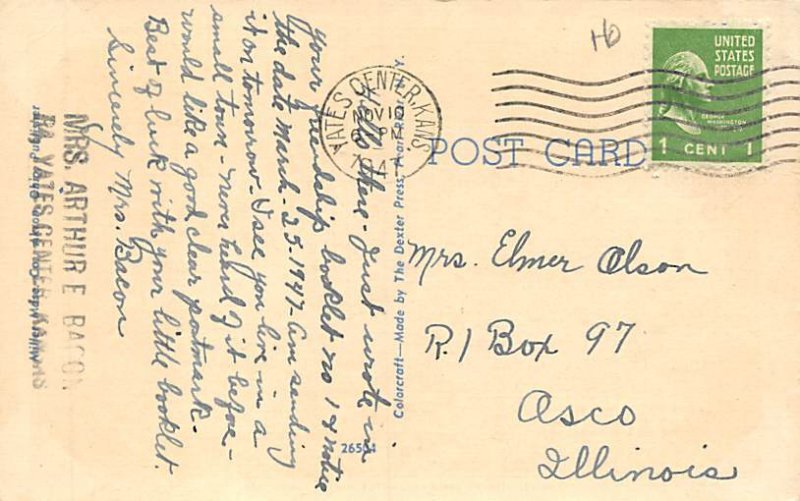 Hello there - Just wrote in
your friendship booklet no 1 & notice
the date March - 25 - 1947 - am sending
it on tomorrow. I see you live in a
small town - never heard of it before -
would like a good clear postmark -
Best of luck with your little booklet.
Sincerely Mrs. Bacon
MRS. ARTHUR E BACON
R4 YATES CENTER KANSAS
YATES CENTER, KANS.
NOV 10
PM
194
Colorcraft—Made by The Dexter Press, Pearl River, N. Y.
26504
POST CARD
UNITED
STATES
POSTAGE
GEORGE
WASHINGTON
1 CENT 1
Mrs. Elmer Olson
R. 1 Box 97
Osco
Illinois